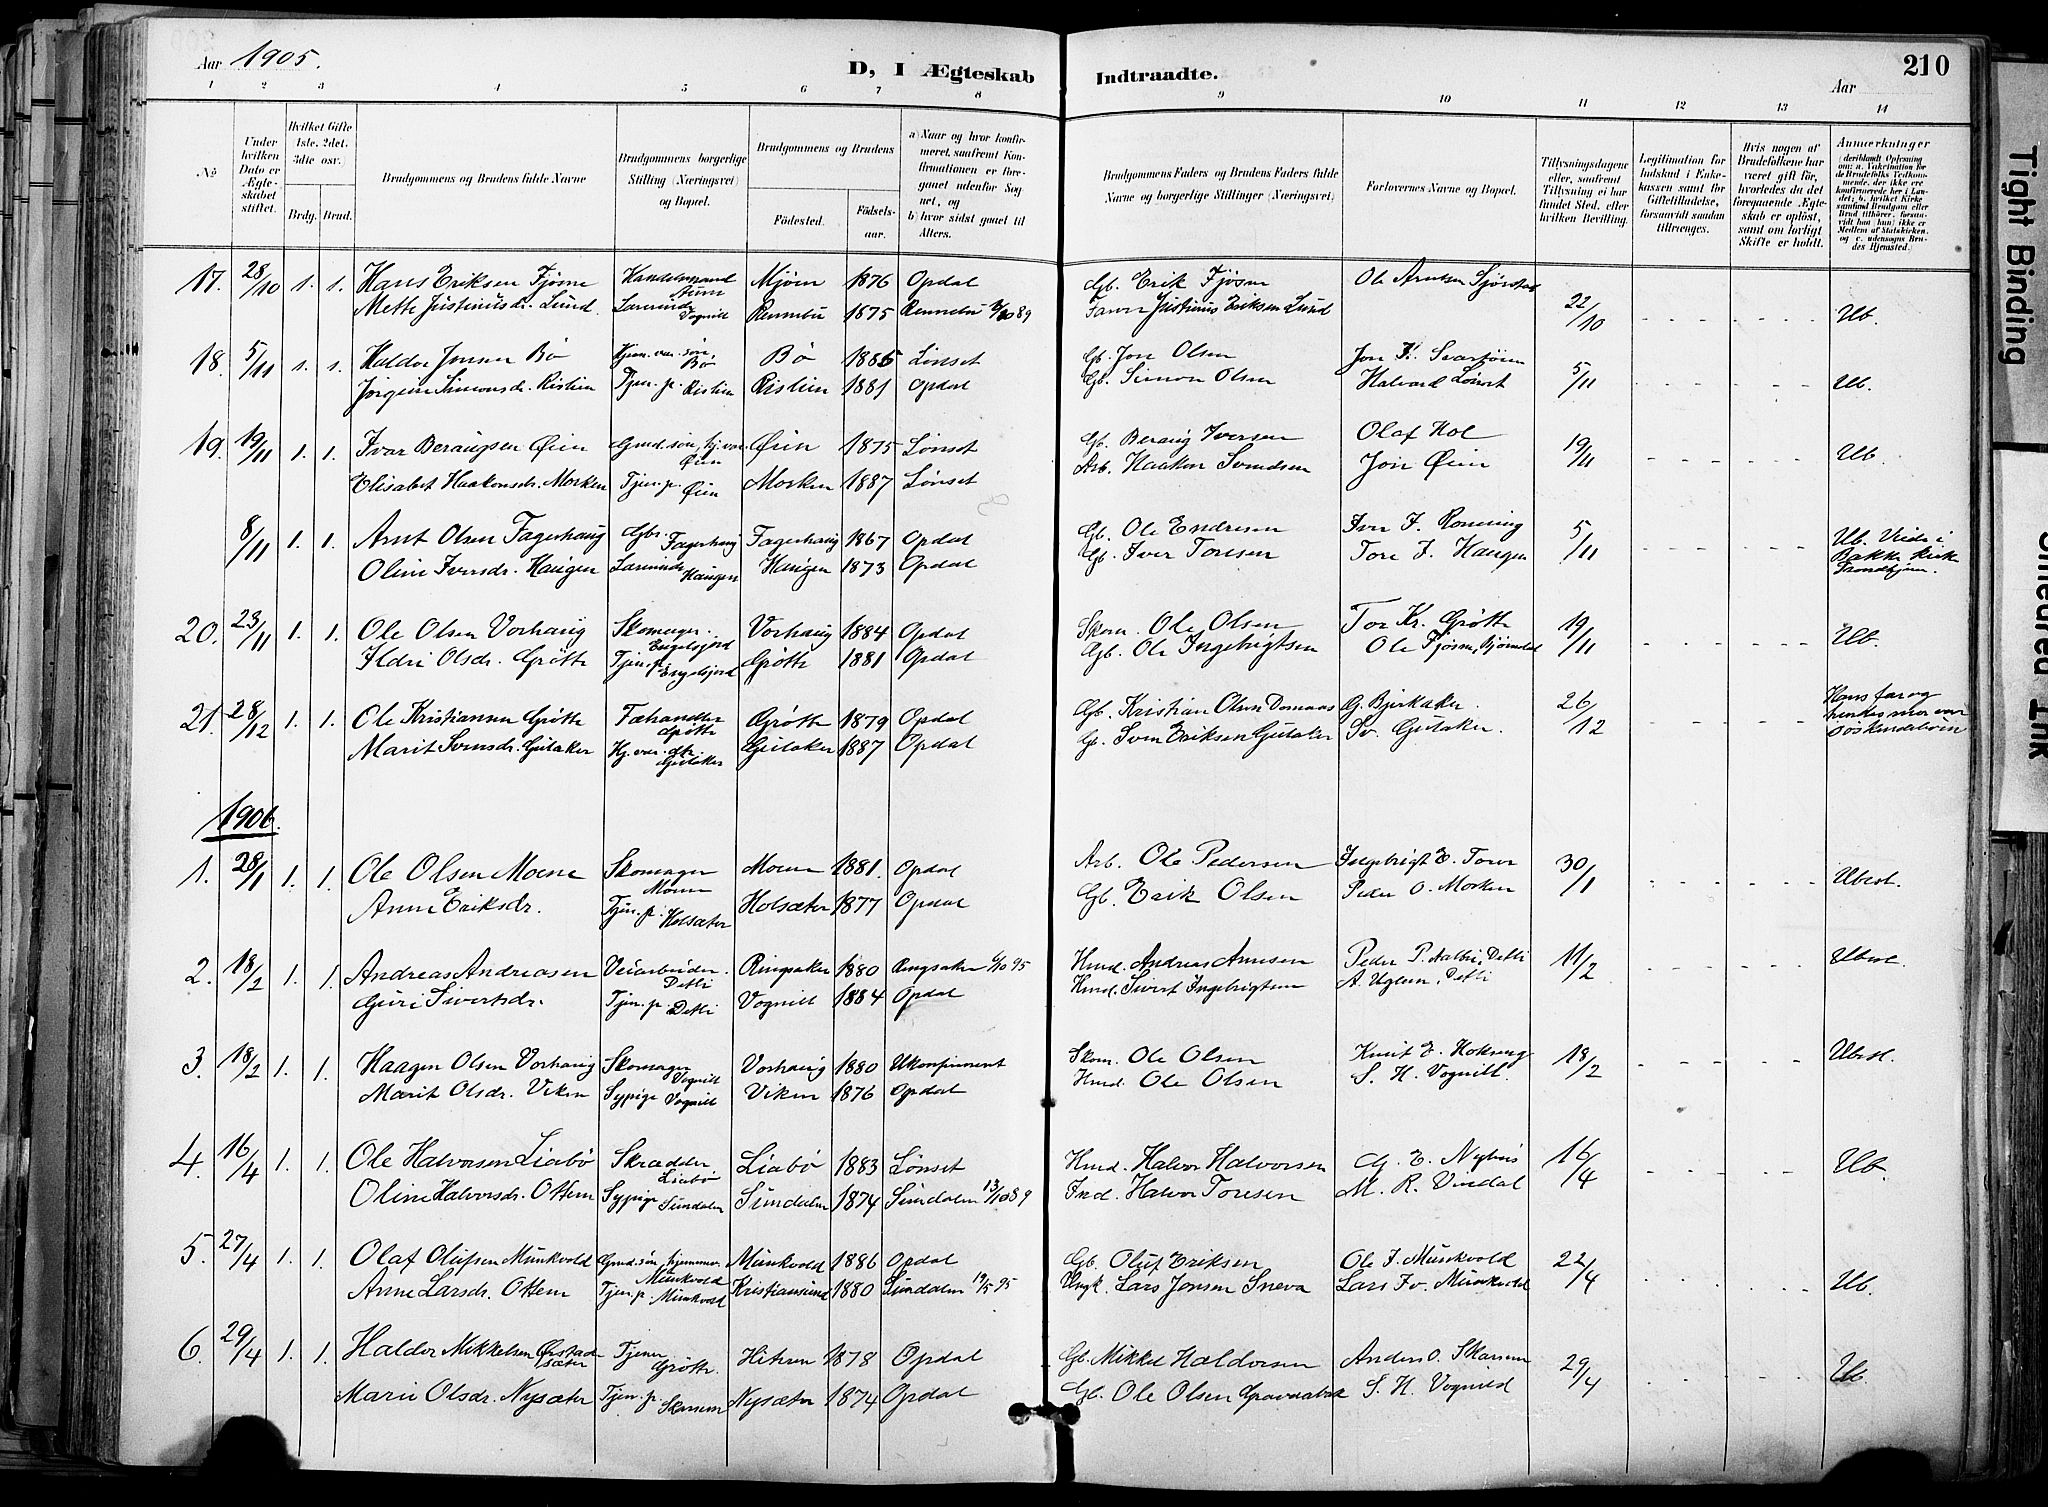 Aar 1905.
D, I Ægteskab Indtraadte.
210
Aar
1 2 3 4 5 6 7 8 9 10 11 12 13 14
No.
Under hvilken Dato er Ægteskabet stiftet.
Hvilket Gifte 1ste, 2det, 3die osv.
Brdg. Brud.
Brudgommens og Brudens fulde Navne
Brudgommens borgerlige Stilling (Næringsvei) og Bopæl.
Brudgommens og Brudens
Fødested.
Fødselsaar.
a) Naar og hvor konfirmeret, saafremt Konfirmationen er foregaaet udenfor Sognet, og
b) hvor sidst gaaet til Alters.
Brudgommens Faders og Brudens Faders fulde Navne og borgerlige Stillinger (Næringsvei)
Forlovernes Navne og Bopæl.
Tillysningsdagene eller, saafremt Tillysning ei har fundet Sted, efter hvilken Bevilling.
Legitimation for Indskud i Enkekassen samt for Giftetilladelse, forsaavidt saadan tiltrænges.
Hvis nogen af Brudefolkene har været gift før, hvorledes da det foregaaende Ægteskab er opløst, samt om lovligt Skifte er holdt.
Anmærkninger
17. 28/10 1. 1. Hans Eriksen Fjøsne Mjøen 1876 Opdal Gb. Erik Fjøsne Ole Arntsen Sjørstad 22/10 Ub.
Mette Justinusdr. Lund. Vognill Rennebu 1875 Rennebu Justinus Eriksen Lund
18. 5/11 1. 1. Haldor Jonsen Bø Hjem. vær. søn, Bø Bø 1886 Lønset Gb. Jon Olsen 5/11 Ub.
Jørgine Simonsdr. Ristien Tjen. p. Ristien Ristien 1881 Opdal Gb. Simon Olsen Halvard Lønset
19. 19/11 1. 1. Ivar Beraugsen Øien Gmd. søn, hj. vær. Øien Øien 1875 Lønset Gb. Beraug Iversen Olaf Hol 19/11 Ub.
Elisabet Haakonsdr. Morken Tjen. p. Øien Morken 1887 Lønset Arb. Haakon Svendsen Jon Øien
8/11 1. 1. Arnt Olsen Fagerhaug Gbr. Fagerhaug Fagerhaug 1867 Opdal Gb. Ole Endresen 5/11 Ub. Viede i Bakke Kirke Trondhjem.
Oline Iversdr. Haugen Haugen Haugen 1873 Opdal Gb. Iver Toresen Tore I. Haugen
20. 23/11 1. 1. Ole Olsen Vorhaug Skomager. Engelsjord Vorhaug 1884 Opdal Skom. Ole Olsen Tor Kr. Grøtte 19/11 Ub.
Ildri Olsdr. Grøtte Tjen. p. Engelsjord Grøtte 1881 Opdal Gb. Ole Ingebrigtsen Ole Fjøsne,
21. 28/12 1. 1. Ole Kristiansen Grøtte Fæhandler Grøtte Grøtte 1879 Opdal Gb. Kristian Olsen Domaas G. Bjerkaker 26/12 Hans far og hendes mor var søskendebørn
Marit Svensdr. Gulaker Hj. vær. dtr. Gulaker Gulaker 1887 Opdal Gb. Sven Eriksen Gulaker Sv. Gulaker.
1906.
1. 28/1 1. 1. Ole Olsen Moene Skomager Moene Moene 1881 Opdal Arb. Ole Pedersen Ingebrigt E. Tovr 30/1 Ubesl.
Anne Eriksdr. Tjen. p. Holsæter Holsæter 1877 Opdal Gb. Erik Olsen Peder O. Morken
2. 18/2 1. 1. Andreas Andreasen Veiarbeider. Detli Ringsaker 1880 Ringsaker 6/10 95 Hmd. Andreas Arnesen Peder P. Aalbu, Detli 11/2 Ubesl.
Guri Sivertsdr. Tjen. p. Detli Vognill 1884 Opdal Hmd. Sivert Ingebrigtsen A. Uglem, Detli
3. 18/2 1. 1. Haagen Olsen Vorhaug Skomager Vognill Vorhaug 1880 Ukonfirmert Skom. Ole Olsen Knut E. Hokseng 18/2 Ubesl.
Marit Olsdr. Viken Sypige Vognill Viken 1876 Opdal Hmd. Ole Olsen S. H. Vognill.
4. 16/4 1. 1. Ole Halvorsen Liabø Skrædder, Liabø Liabø 1883 Lønset Hmd. Halvor Halvorsen 16/4 Ub.
Oline Halvorsdr. Ottem Sypige Sundalen Sundalen 1874 Sundalen 13/10 89 Ind. Halvor Toresen M. R. Vindal
5. 27/4 1. 1. Olaf Olufsen Munkvold Gmd. søn, hjemmev. Munkvold Munkvold 1886 Opdal Gb. Oluf Eriksen Ole J. Munkvold 22/4 Ub.
Anne Larsdr. Ottem Tjen. p. Munkvold Kristiansund 1880 Sundalen 19/5 95 Ungk. Lars Jonsen Sneva Lars Iv. Munkvold
6. 29/4 1. 1. Haldor Mikkelsen Ørstadsæter Tjener Grøtte. Hitren 1878 Opdal Gb. Mikkel Haldorsen Anders O. Skarsem 29/4 Ub
Marie Olsdr. Nysæter Tjen. p. Skarsem Nysæter 1874 Opdal Gb. Ole Olsen S. H. Vognild
Tight Binding
Smeared Ink